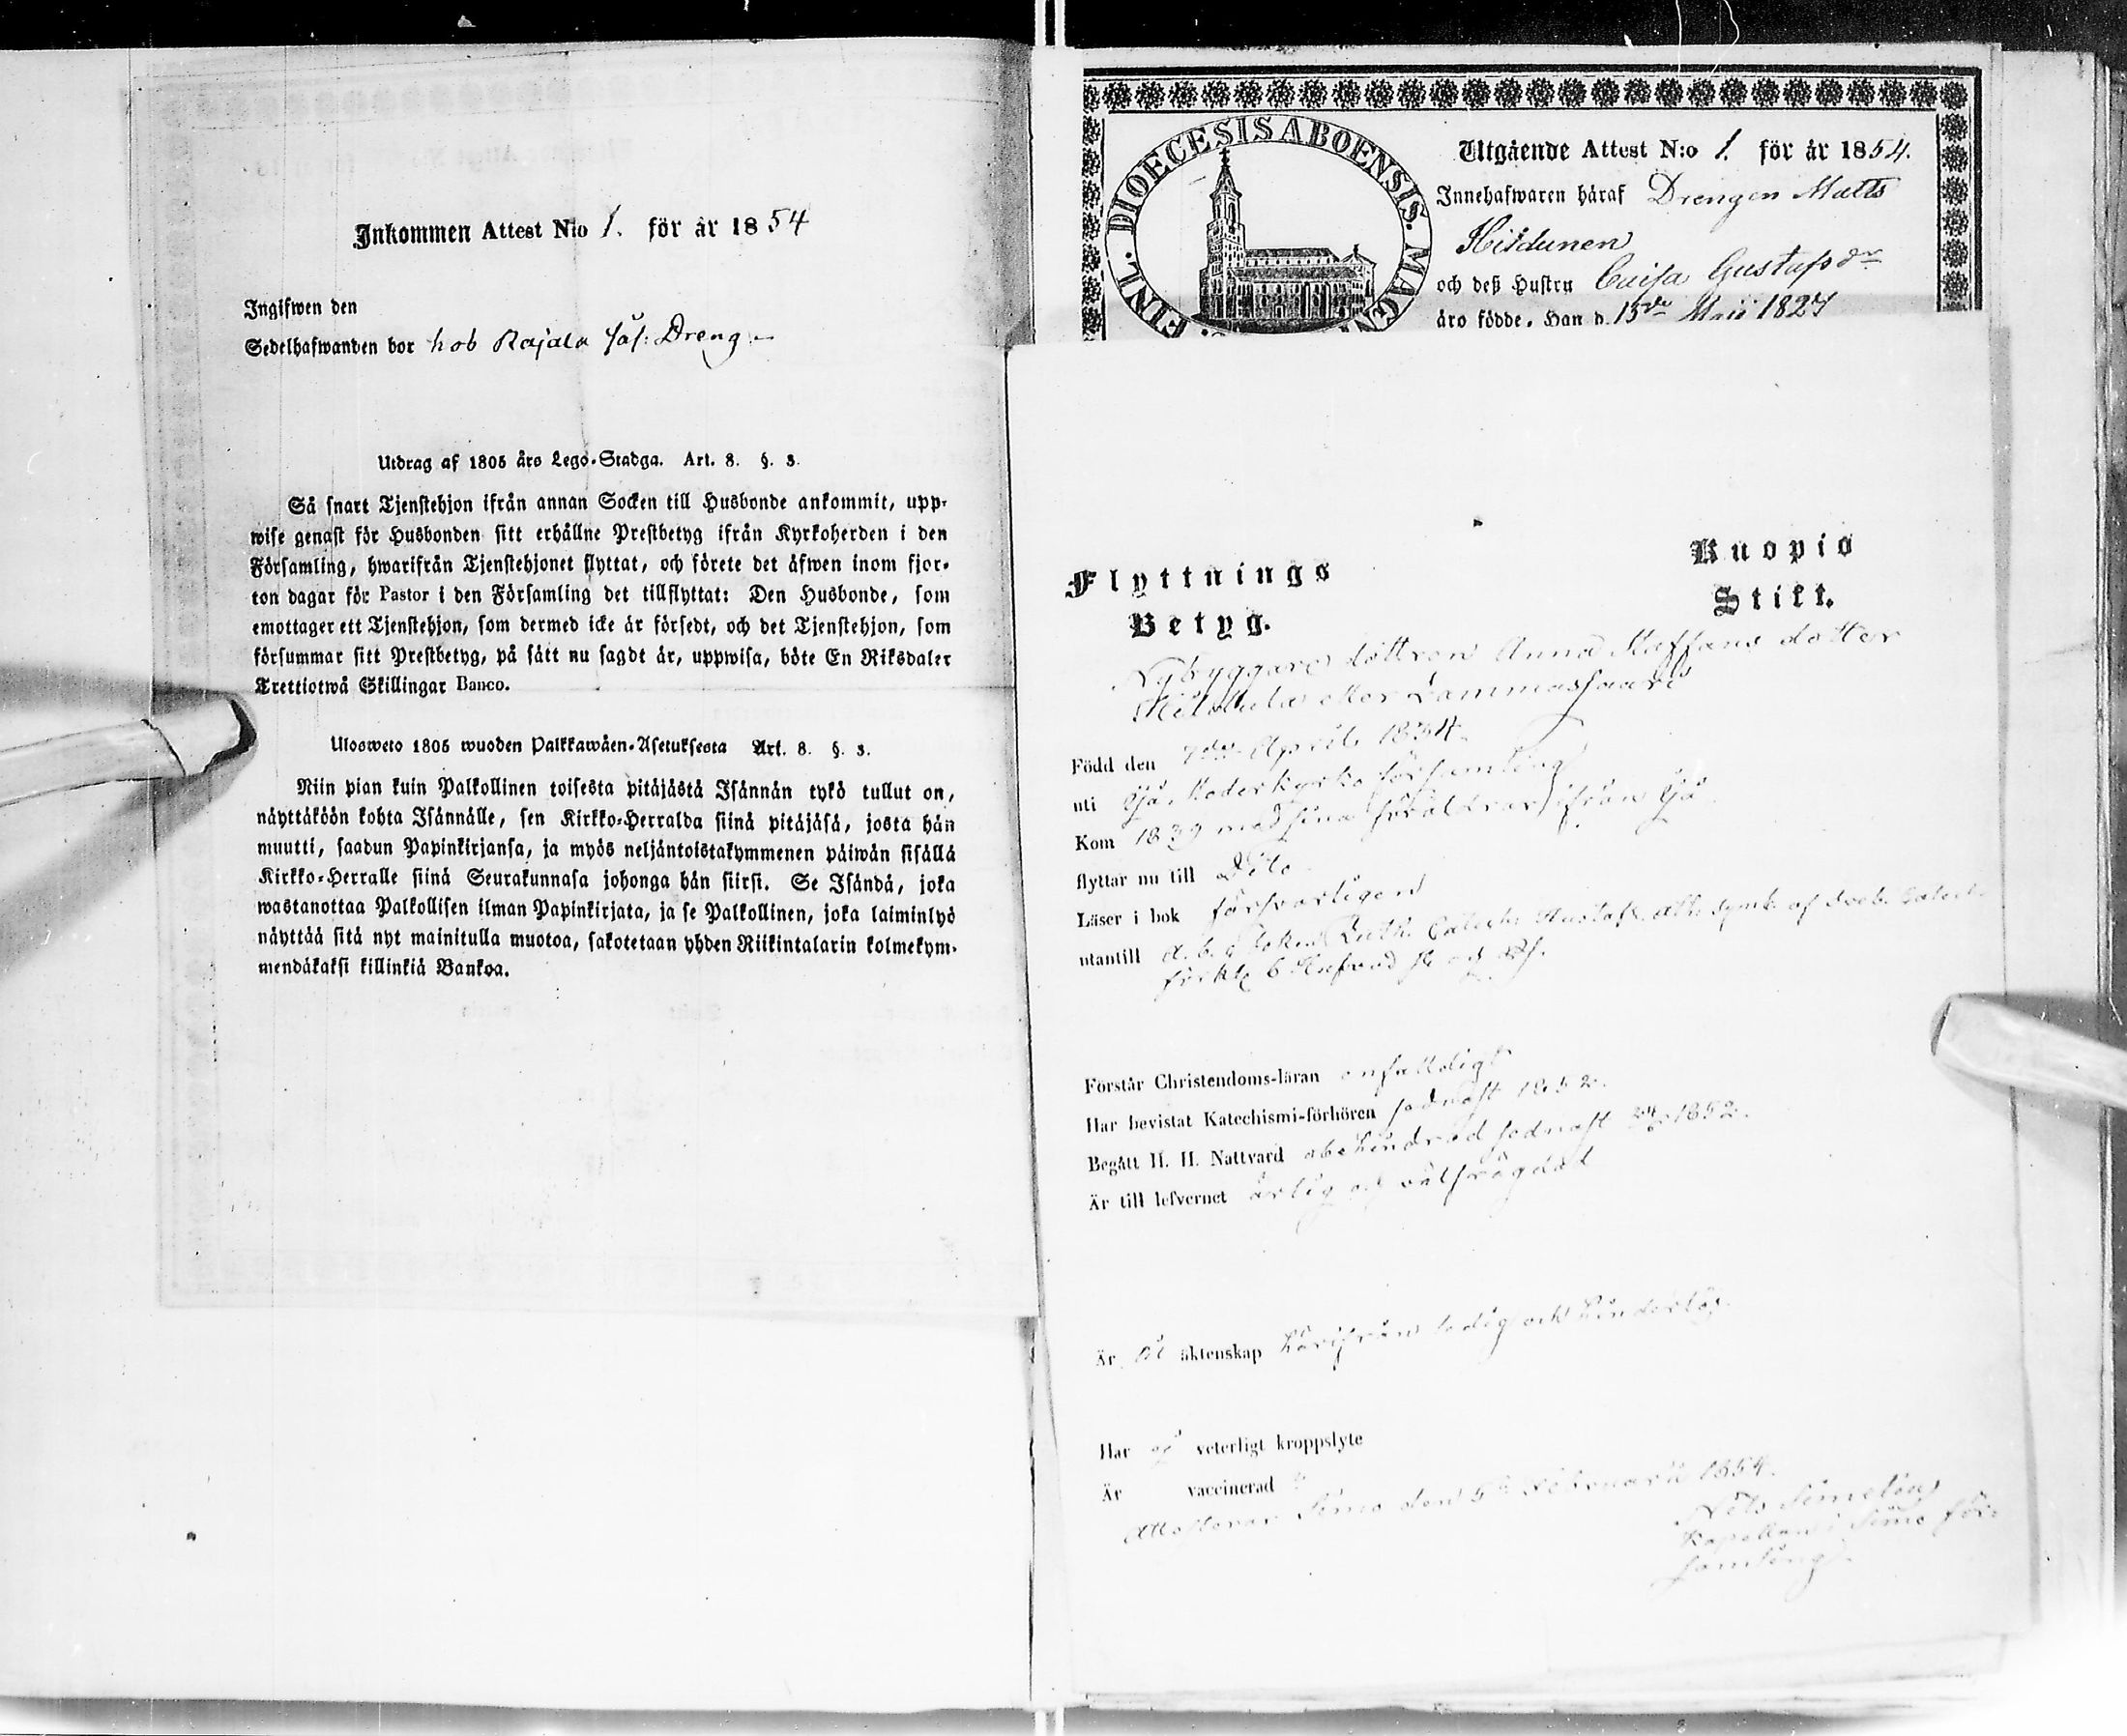 Inkommen Attest N:o 1. för år 1854
Ingifwen den
Sedelhafwanden bor hos Rajala såf: Dreng
Utdrag af 1805 års Lego-Stadga. Art. 8. §. 3.
Så snart Tjenstehjon ifrån annan Socken till Husbonde ankommit, upp-
wise genast för Husbonden sitt erhållne Prestbetyg ifrån Kyrkoherden i den
Församling, hwarifrån Tjenstehjonet flyttat, och förete det äfwen inom fjor-
ton dagar för Pastor i den Församling det tillflyttat: Den Husbonde, som
emottager ett Tjenstehjon, som dermed icke är försedt, och det Tjenstehjon, som
försummar sitt Prestbetyg, på sätt nu sagdt är, uppwisa, böte En Riksdaler
Trettiotwå Skillingar Banco.
Ulosweto 1805 wuoden Palkkawäen-Asetuksesta Art. 8. §. 3.
Niin pian kuin Palkollinen toisesta pitäjästä Isännän tykö tullut on,
näyttäköön kohta Isännälle, sen Kirkko-Herralda siinä pitäjäsä, josta hän
muutti, saadun Papinkirjansa, ja myös neljäntoistakymmenen päiwän sisällä
Kirkko-Herralle siinä Seurakunnasa johonga hän siirsi. Se Isändä, joka
wastanottaa Palkollisen ilman Papinkirjata, ja se Palkollinen, joka laiminlyö
näyttää sitä nyt mainitulla muotoa, sakotetaan yhden Riikintalarin kolmekym-
mendäkaksi killinkiä Bankoa.
FINL. DIOECESIS ABOENSIS. MAGNI
Utgående Attest N:o 1. för år 1854.
Innehafwaren häraf Drengen Matts
Hildunen
och deß Hustru Caisa Gustafsdr
äro födde. Han d. 15de Maji 1827
Flyttnings
Betyg.
Kuopio
Stift.
Nybyggare dottren Anna Staffans dotter
eller Lammassaari
Född den 7de April 1834
uti Ijo Moderkyrko församling
Kom 1839 med sina föräldrar ifrån Ijo
flyttar nu till Dito
Läser i bok försvarligen
utantill a. b. c boken Luth. Catech. Hustafl. Ath. symb. af Sveb. Catech.
Förstår Christendoms-läran enfaldigt
Har bevistat Katechismi-förhören sednast 1852.
Begått H. H. Nattvard obehindrad sednast 24/6 1852.
Är till lefvernet ärlig och välfrägdad
Är till äktenskap härifrån ledig och hinderlös.
Har ej veterligt kroppslyte
Är vaccinerad
Attesterar Simo den 5 Februarii 1854.
Nils Simelius
Kapellan i Simo för-
samling